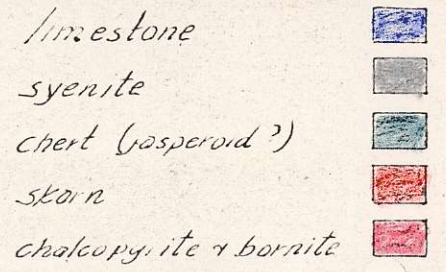 limestone
syenite
chert (jasperoid?)
skarn
chalcopyrite & bornite